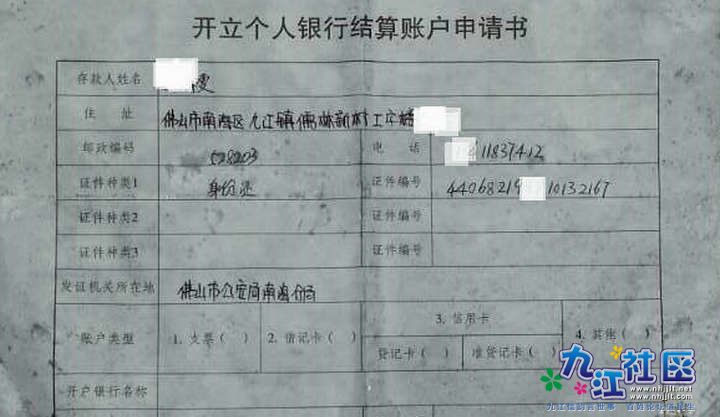 开立个人银行结算账户申请书
存款人姓名
住 址 佛山市南海区九江镇儒林新村工
邮政编码 528203 电 话 411837412
证件种类1 身份证 证件编号 44068219 10132167
证件种类2 证件编号
证件种类3 证件编号
发证机关所在地 佛山市公安局南海分局
账户类型 1. 支票( ) 2. 借记卡( ) 3. 信用卡 4. 其他( )
贷记卡( ) 准贷记卡( )
开户银行名称
九江社区
www.nhjjlt.net